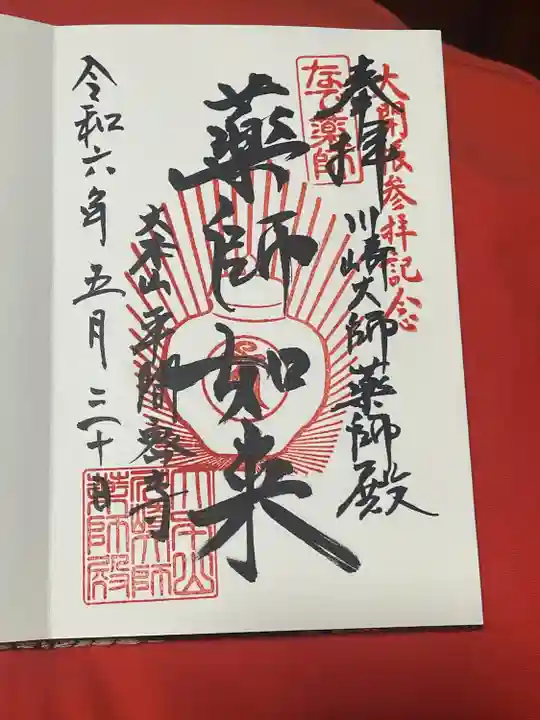 大開張参拝記念
奉拝
川崎大師薬師殿
なで薬師
薬師如来
大本山平間寺
令和六年五月二十日
大本山
川崎大師
薬師殿